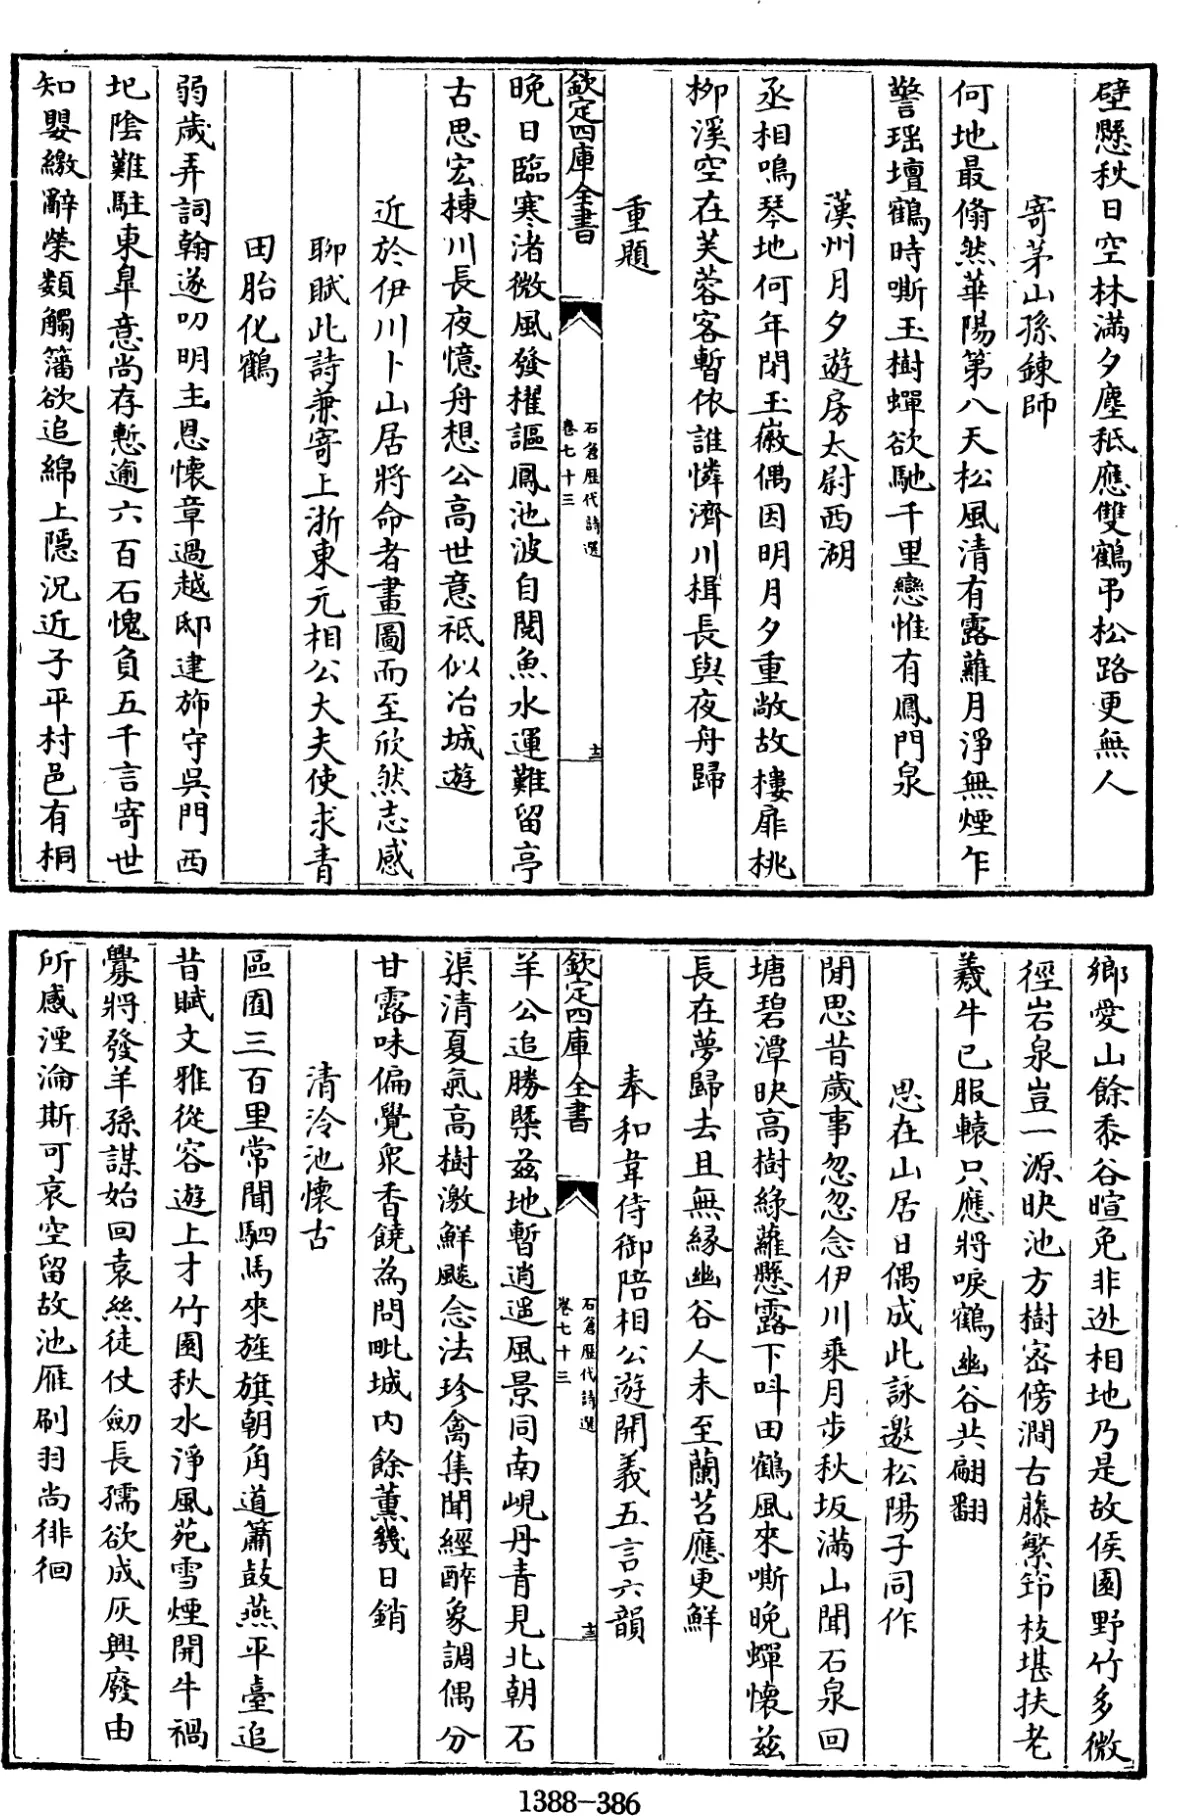 壁懸秋日空林滿夕塵秪應雙鶴弔松路更無人
寄茅山孫鍊師
何地最翛然華陽第八天松風清有露蘿月淨無煙乍
警瑶壇鶴時嘶玉樹蟬欲馳千里戀惟有鳳門泉
漢州月夕遊房太尉西湖
丞相鳴琴地何年閉玉徽偶因明月夕重敞故樓扉桃
柳溪空在芙蓉客暫依誰憐濟川楫長與夜舟歸
重題
欽定四庫全書
石倉歷代詩選
卷七十三
十二
晚日臨寒渚微風發櫂謳鳳池波自闊魚水運難留亭
古思宏棟川長夜憶舟想公高世意秪似冶城遊
近於伊川卜山居將命者畫圖而至欣然志感
聊賦此詩兼寄上浙東元相公大夫使求青
田胎化鶴
弱歲弄詞翰遂叨明主恩懷章過越邸建斾守吳門西
圯陰難駐東臯意尚存慙逾六百石愧負五千言寄世
知嬰繳辭榮類觸籓欲追緜上隱況近子平村邑有桐
鄉愛山餘黍谷暄免非逃相地乃是故侯園野竹多微
徑岩泉豈一源映池方樹密傍澗古藤繁笻枝堪扶老
羲牛已服轅只應將唳鶴幽谷共翩翻
思在山居日偶成此詠邀松陽子同作
閒思昔歲事忽忽念伊川乘月步秋坂滿山聞石泉回
塘碧潭映高樹綠蘿懸露下叫田鶴風來嘶晚蟬懷茲
長在夢歸去且無緣幽谷人未至蘭苕應更鮮
奉和韋侍御陪相公遊開義五言六韻
欽定四庫全書
石倉歷代詩選
卷七十三
十三
羊公追勝槩茲地暫逍遙風景同南峴丹青見北朝石
渠清夏氣高樹激鮮飈念法珍禽集聞經醉象調偶分
甘露味偏覺衆香饒為問毗城内餘薰幾日銷
清泠池懷古
區囿三百里常聞駟馬來旌旗朝角道簫鼓燕平臺追
昔賦文雅從容遊上才竹園秋水淨風苑雪煙開牛禍
釁將發羊孫謀始回袁絲徒仗劒長孺欲成灰興廢由
所感湮淪斯可哀空留故池雁刷羽尚徘徊
1388-386